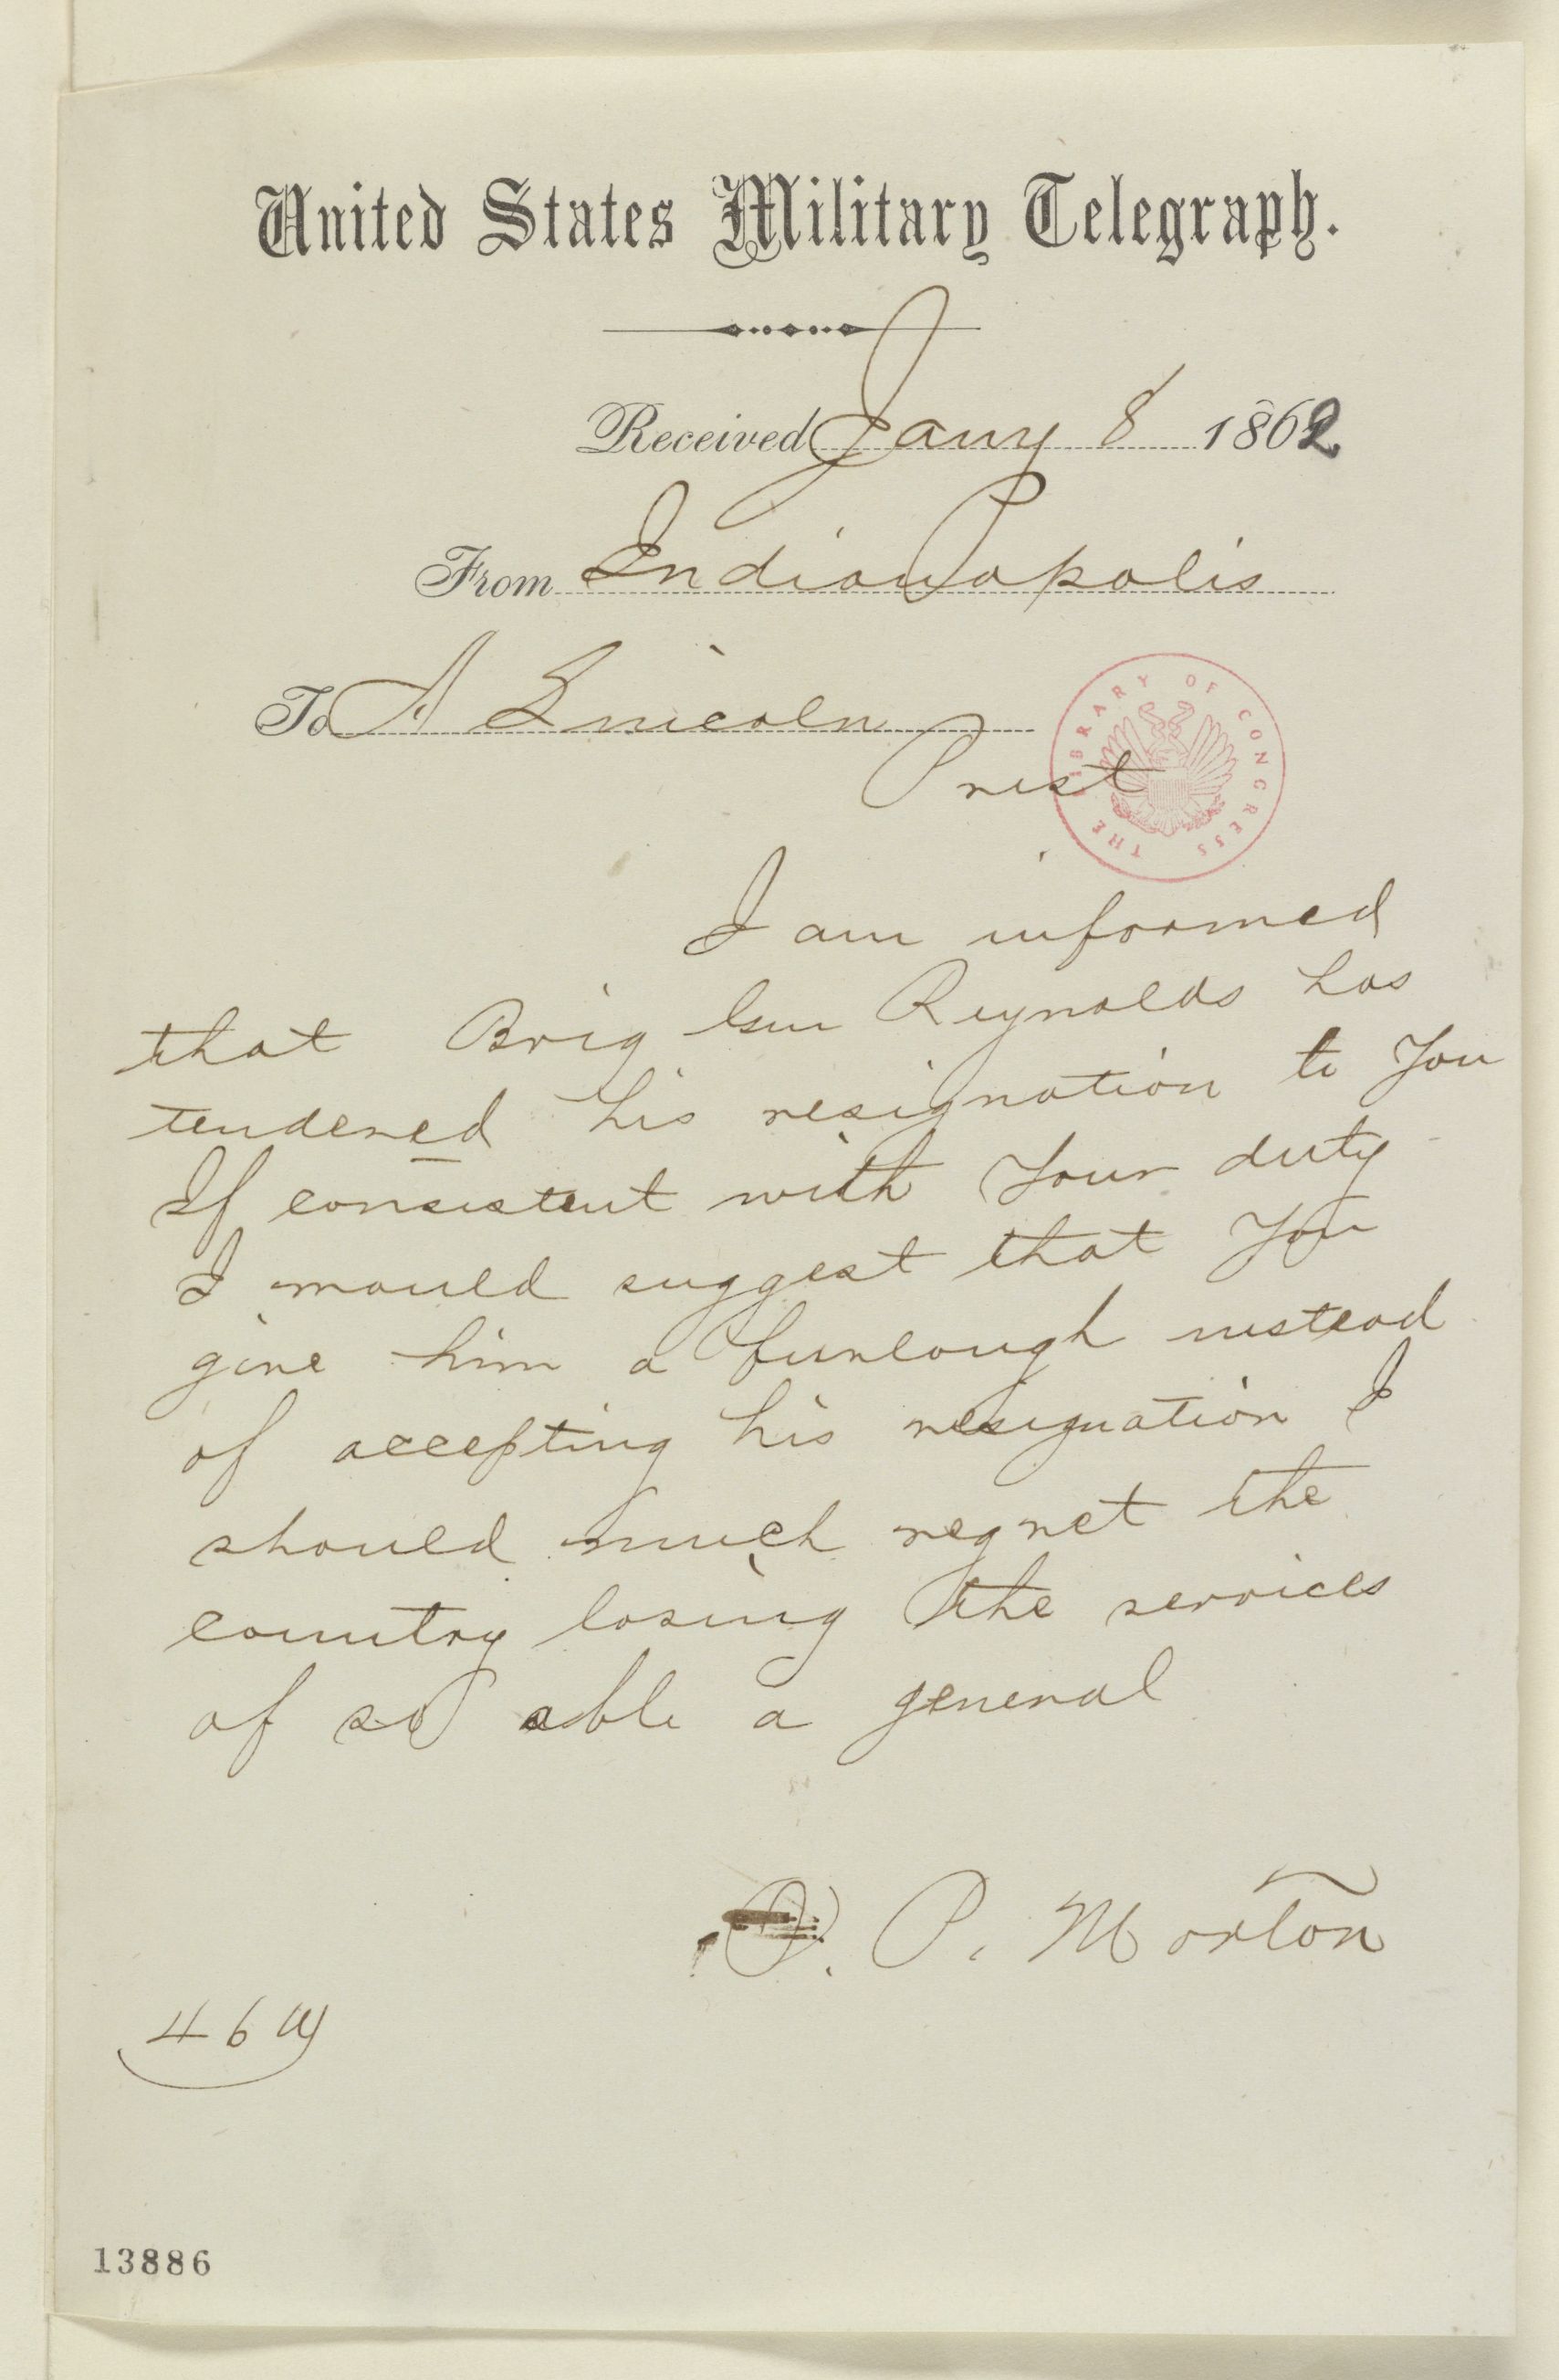 United States Military Telegraph.
Received Jany 8 1862
From Indianapolis
To A Lincoln
Prest
THE LIBRARY OF CONGRESS
I am informed
that Brig Gen Reynolds has
tendered his resignation to You
If consistent with Your duty
I would suggest that You
give him a furlough instead
of accepting his resignation I
should much regret the
country losing the services
of so able a general
O. P. Morton
46 W
13886